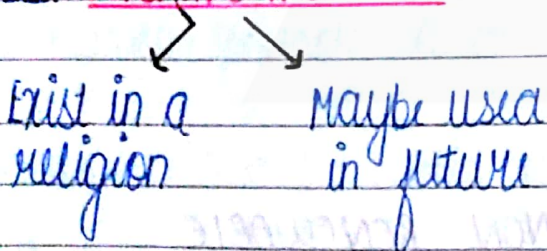 Exist in a
religion
Maybe used
in future